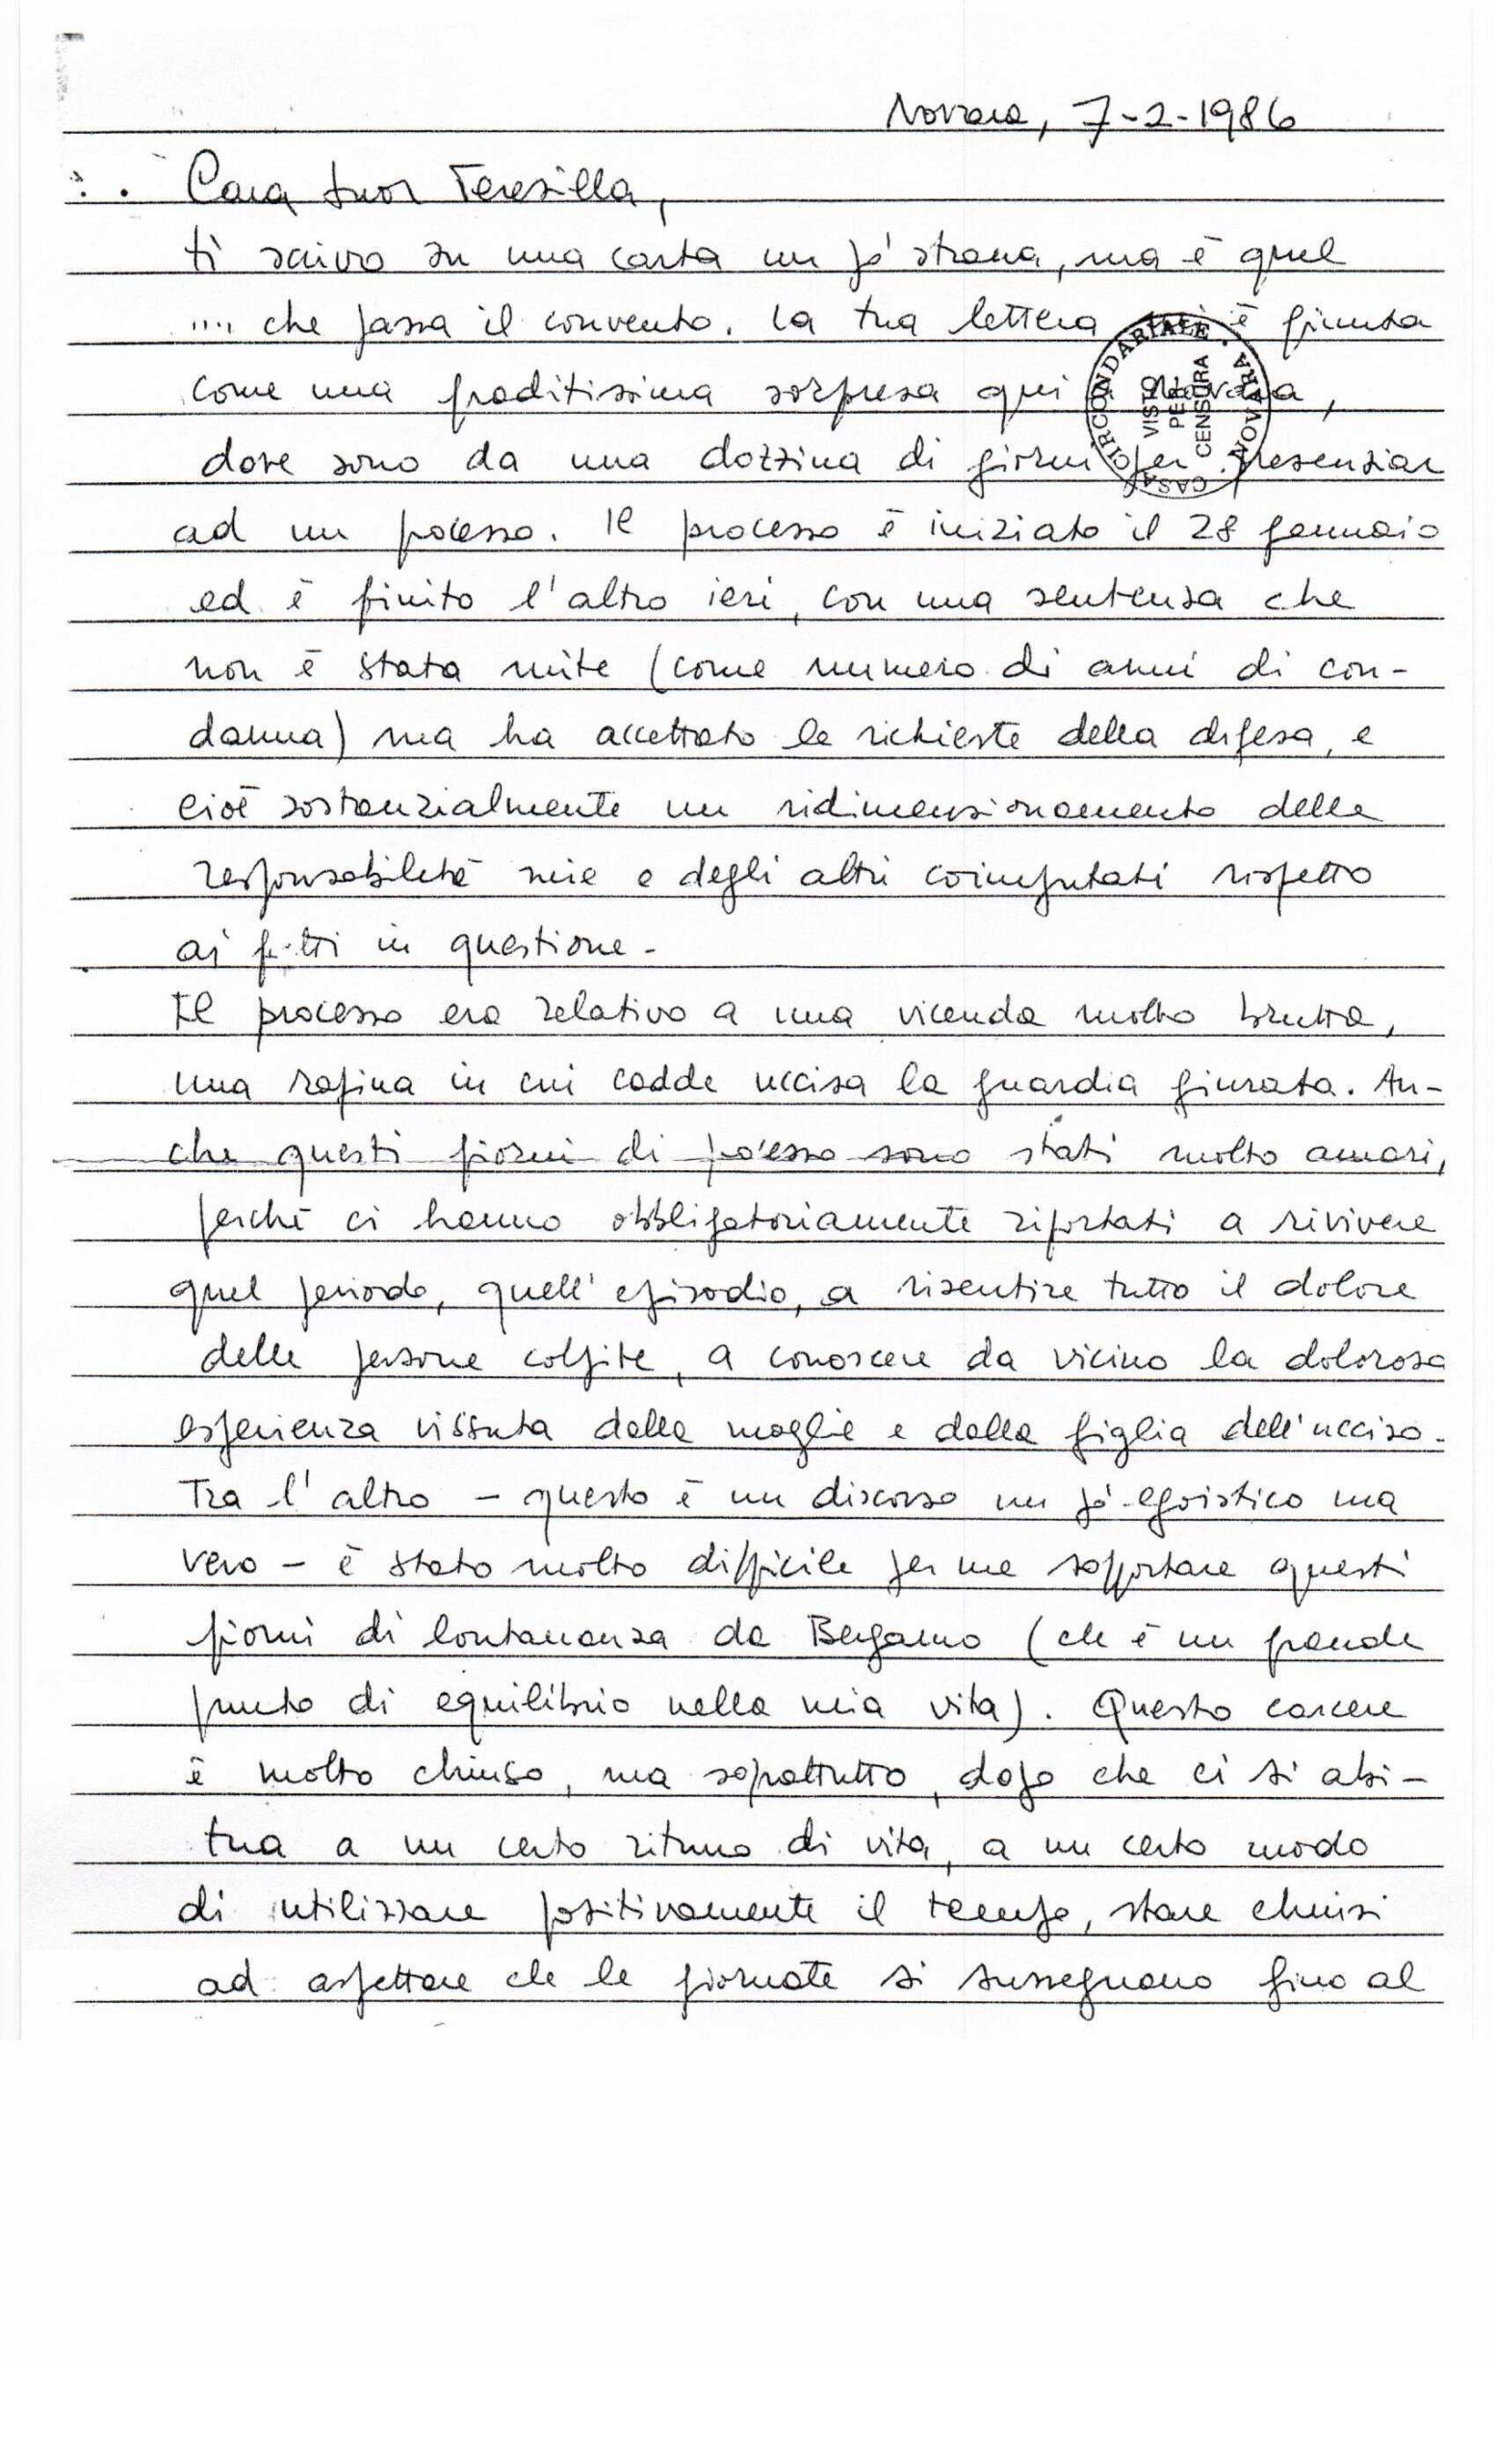 Novara, 7-2-1986
Cara Suor Teresilla,
ti scrivo su una carta un pò strana, ma è quel
.... che passa il convento. La tua lettera mi è giunta
come una graditissima sorpresa qui a Novara,
dove sono da una dozzina di giorni per presenziar
ad un processo. Il processo è iniziato il 28 gennaio
ed è finito l'altro ieri, con una sentenza che
non è stata mite (come numero di anni di con-
danna) ma ha accettato le richieste della difesa, e
cioè sostanzialmente un ridimensionamento delle
responsabilità mie e degli altri coimputati rispetto
ai fatti in questione-
Il processo era relativo a una vicenda molto brutta,
una rapina in cui cadde uccisa la guardia giurata. An-
che questi giorni di processo sono stati molto amari,
perchè ci hanno obbligatoriamente riportati a rivivere
quel periodo, quell'episodio, a risentire tutto il dolore
delle persone colpite, a conoscere da vicino la dolorosa
esperienza vissuta dalla moglie e dalla figlia dell'ucciso.
Tra l'altro - questo è un discorso un pò egoistico ma
vero - è stato molto difficile per me sopportare questi
giorni di lontananza da Bergamo (che è un grande
punto di equilibrio nella mia vita). Questo carcere
è molto chiuso, ma soprattutto, dopo che ci si abi-
tua a un certo ritmo di vita, a un certo modo
di utilizzare positivamente il tempo, stare chiusi
ad aspettare che le giornate si susseguano fino al
CASA CIRCONDARIALE · NOVARA
VISTO
PER
CENSURA